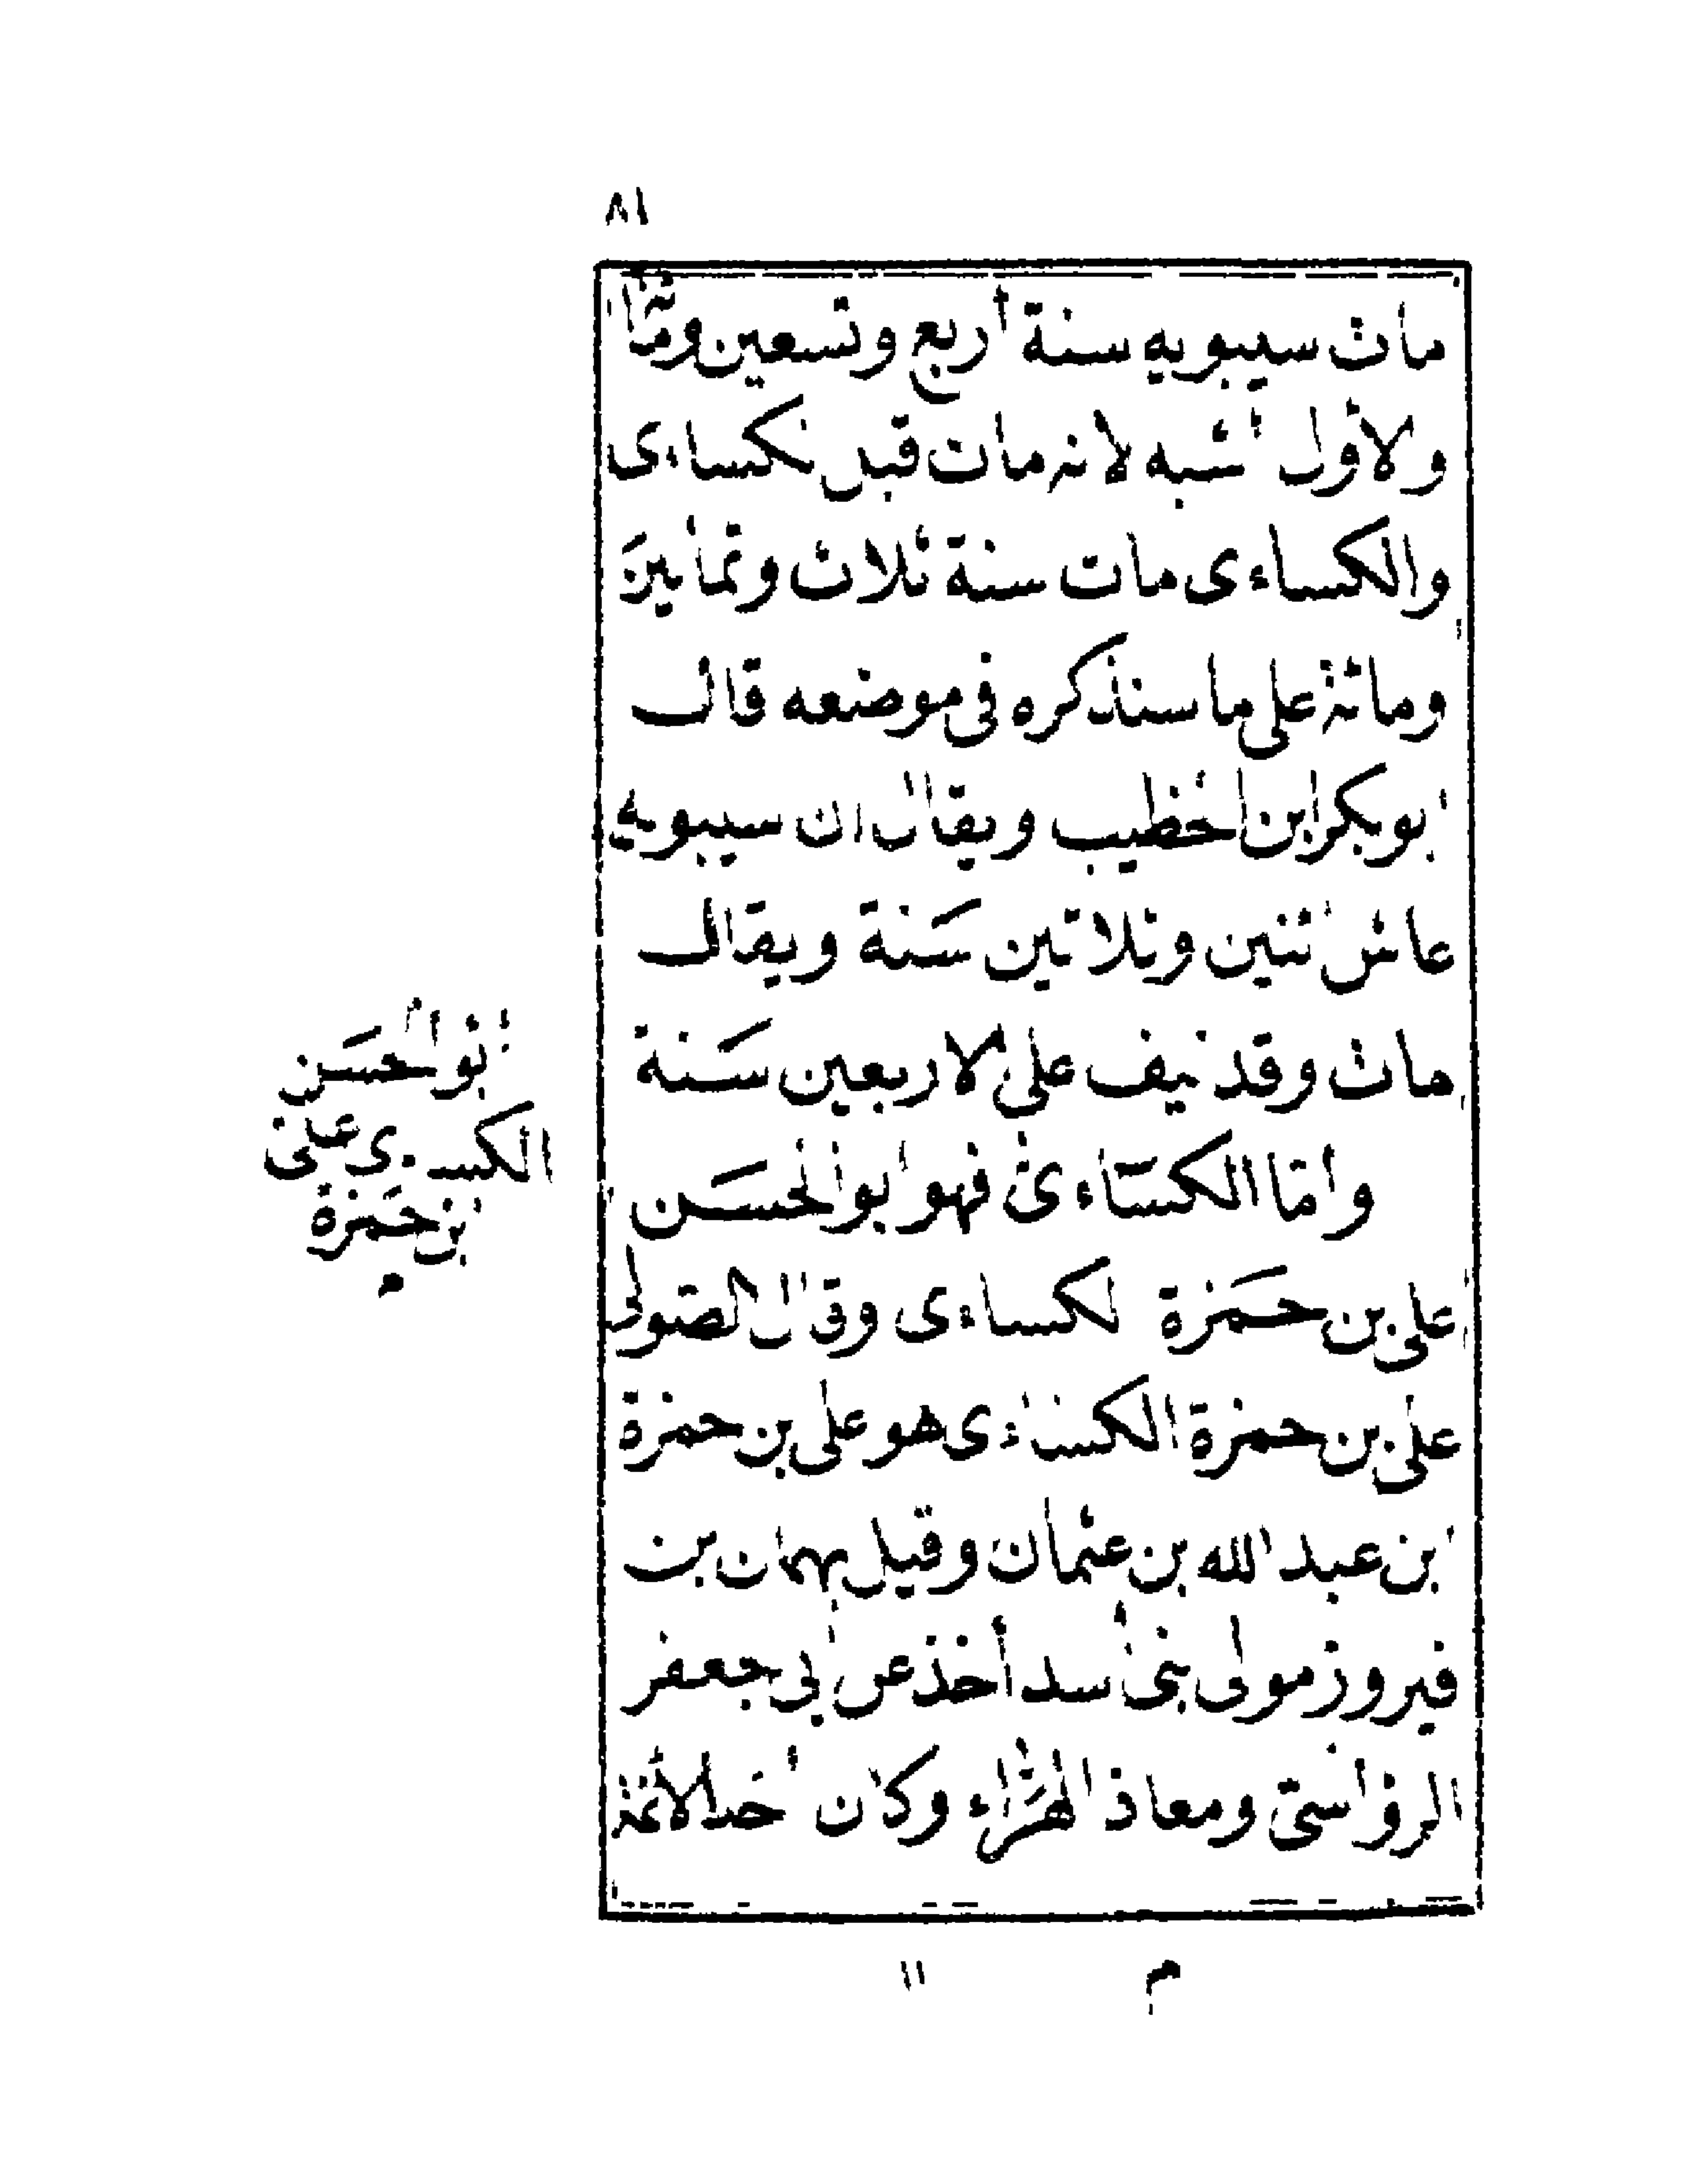 ٨١
مات سيبويه سنة أربع وتسعين ومائة
والأول أشبه لأنه مات قبل الكساءى
والكساءى مات سنة ثلاث وثمانين
ومائة على ما سنذكره فى موضعه قال
ابو بكر ابن الخطيب ويقال ان سيبويه
عاش اثنين وثلاثين سَنة ويقال
مات وقد نيف على الاربعين سَنة
وامّا الكسَاءى فهو ابو الحسَن
على بن حَمَزة الكساءى وقال الصّولى
على بن حمزة الكساءى هو على بن حمزة
ابن عبد الله بن عثمان وقيل بهمان بن
فيروز مولى بنى أسد أخذ عن أبى جعفر
الرؤاسىّ ومعاذ الهرّاء وكان أحد الأئمة
أبو الحسَن
الكساءى على
ابن حَمَزة
م ١١